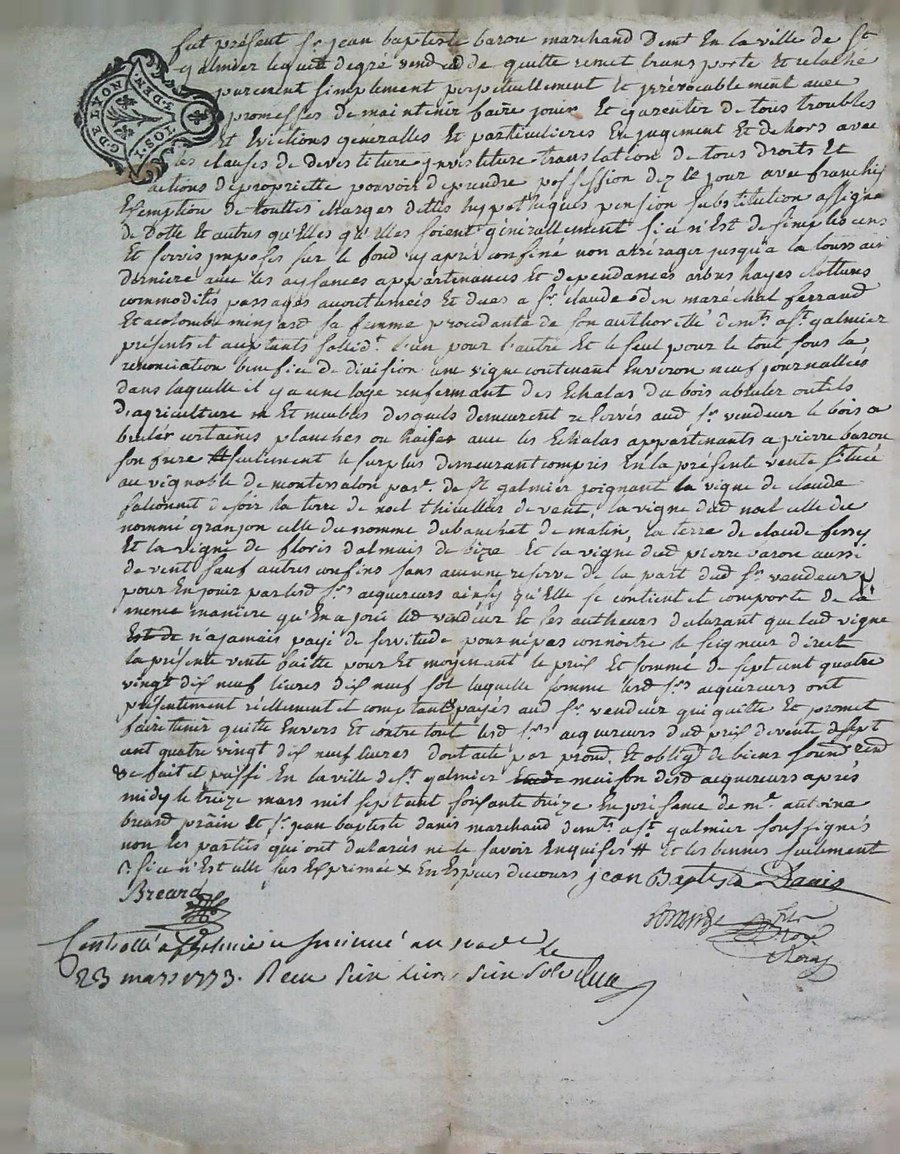 G. DE LYON
2 S. 1 DEN.
fut présent sr. jean baptiste barou marchand demt En la ville de st
galmier lequel degré vend cedde quitte remet transporte et relaché
purement simplement perpetuellement Et irrévocablement avec
promesses de maintenir faire jouir Et garentir de tous troubles
Et Evictions generalles Et particulieres En jugement Et dehors avec
les clauses de devestiture investiture translation de tous droits Et
actions de propriette pouvoir de prendre possession dez ce jour avec franchise
Exemption de touttes charges dettes hypotheques pension substitution assigné
de Dotte Et autres qu'Elles qu'Elles soient généralement si ce n'Est de simples cens
Et servis imposés sur le fond cy après confiné non arrérager jusqu'a la
derniere avec les aysances appartenances Et dependances arbres hayes clotures
commodités passages accoutumeés Et dues a sr. claude odin maréchal ferrand
Et a colombe minjard sa femme procedante de son authorité demts. a st. galmier
présents et acceptants sollidt. l'un pour l'autre Et le seul pour le tout sous la
renonciation benefice de division une vigne contenant Environ neuf journalleés
dans laquelle il y a une loge renfermant des Echalas du bois a bruler outels
d'agriculture Et meubles desquels demeurent reservés aud sr. vendeur le bois a
bruler certaines planches ou avec les Echalas appartenants a pierre barou
son frere seulement le surplus demeurant compris En la présente vente située
au vignoble de montessalon parr. de st galmier joignant la vigne de claude
de soir la terre de noel thivellas de vent, la vigne dud noel celle du
nommé granjon celle du nomme dubanchet de matin, la terre de claude
Et la vigne de floris dalmais de bize Et la vigne dud pierre barou aussi
de vent sauf autres confins sans aucune reserve de la part dud sr. vendeur
pour En jouir par lesd srs. acquereurs ainsy qu'Elle se contient et comporte de la
meme maniere qu'En a joui led vendeur Et ses autheurs declarant que lad vigne
n'a jamais payé de servitude pour ne pas connoitre le seigneur direct
la présente vente faitte pour Et moyenant le prix Et somme de sept cent quatre
vingt dix neuf livres dix neuf sol laquelle somme lesd srs. acquereurs ont
présentement réellement et comptant payés aud sr. vendeur qui quitte Et promet
faire tenir quitte Envers Et contre tout lesd srs. acquereurs dud prix de vente de sept
cent quatre vingt dix neuf livres dont acte par prom. Et obligé. de biens
fait et passé En la ville de st. galmier maison desd acquereurs après
midy le treize mars mil sept cent soixante treize En présance de me. antoine
breard prain Et sr. jean baptiste danis marchand demts. a st. galmier soussignés
non les parties qui ont declarés ne le savoir Enquises Et les bennes seulement
si ce n'Est celle sus Exprimée En Espèces du cours jean Baptiste Danis
Breard
Controllé a st galmier le
23 mars 1773. Recu